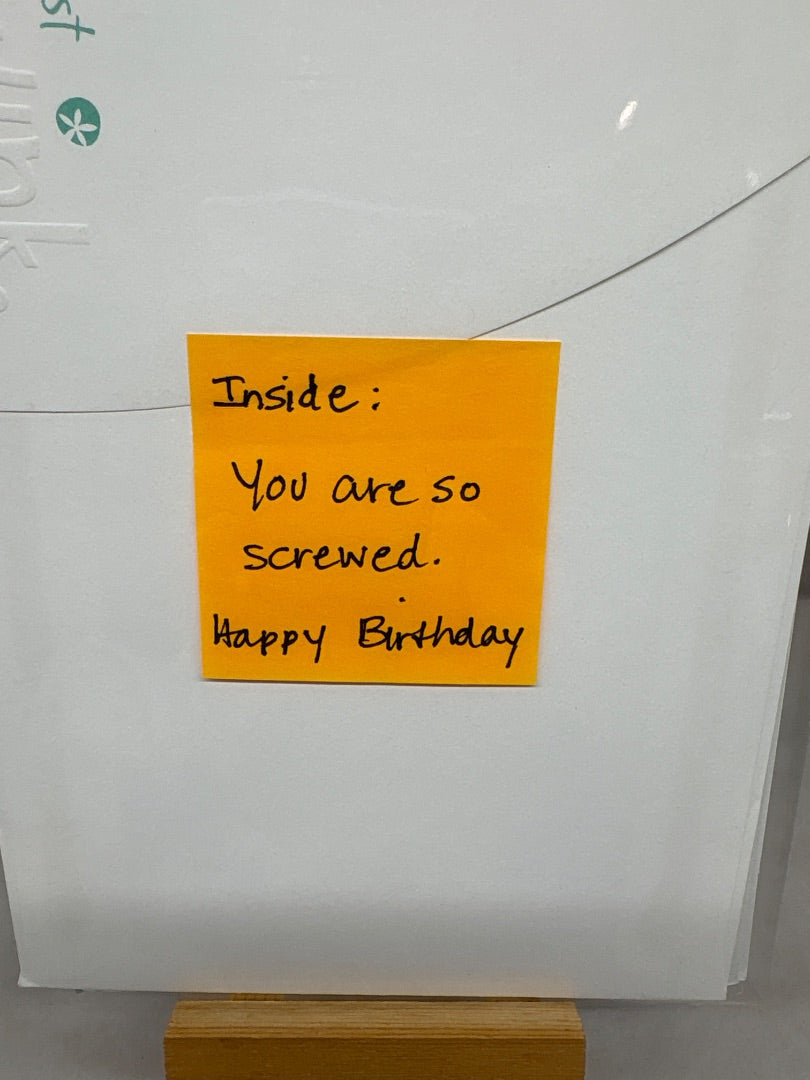 st
Inside:
You are so
screwed.
Happy Birthday